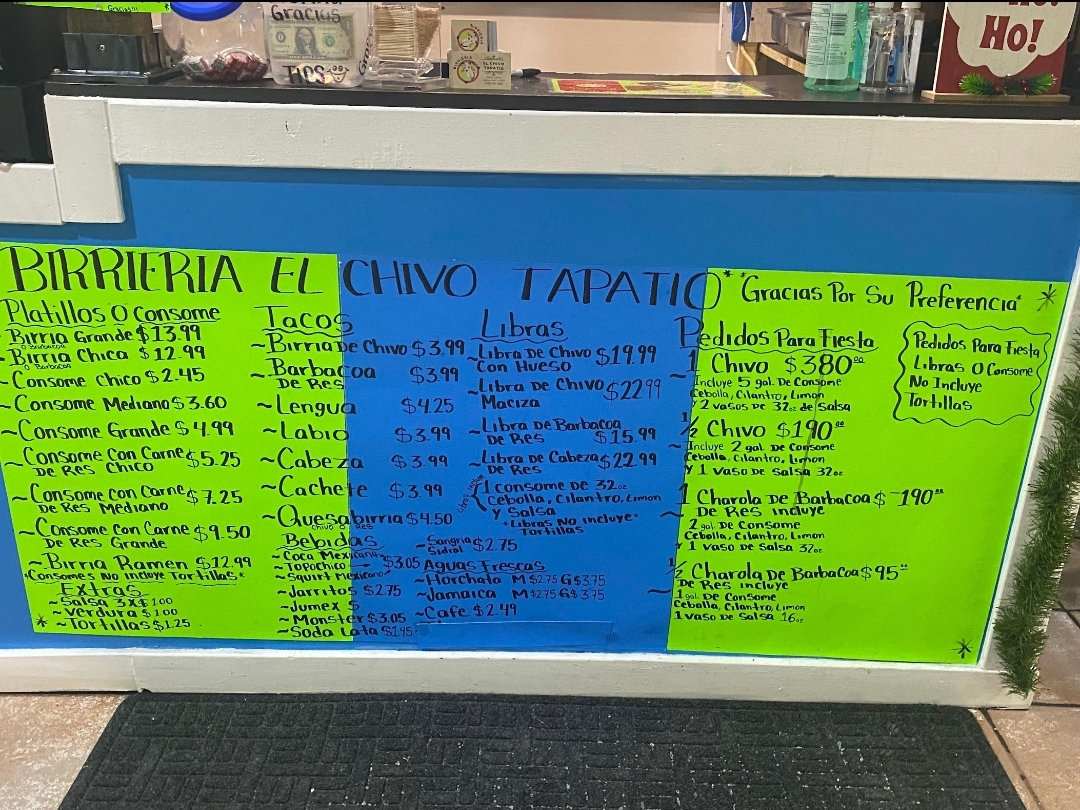 Gracias
TIPS
EL CHIVO
TAPATIO
HO!
BIRRIERIA EL CHIVO TAPATIO
*Gracias Por Su Preferencia*
Platillos O Consome
~ Birria Grande $13.99
O Barbacoa
~ Birria Chica $12.99
O Barbacoa
~ Consome Chico $2.45
~ Consome Mediano $3.60
~ Consome Grande $4.99
~ Consome Con Carne $5.25
De Res Chico
~ Consome Con Carne $7.25
De Res Mediano
~ Consome Con Carne $9.50
De Res Grande
~ Birria Ramen $12.99
*Consomes No Incluye Tortillas*
Extras
~ Salsa 3x$1.00
~ Verdura $1.00
* ~ Tortillas $1.25
Tacos
~ Birria De Chivo $3.99
~ Barbacoa $3.99
De Res
~ Lengua $4.25
~ Labio $3.99
~ Cabeza $3.99
~ Cachete $3.99
~ Quesabirria $4.50
Chivo O Res
Bebidas
~ Coca Mexicana
~ Topochico $3.05
~ Squirt Mexicano
~ Jarritos $2.75
~ Jumex $
~ Monster $3.05
~ Soda Lata $1.45
Libras
~ Libra De Chivo $19.99
Con Hueso
~ Libra De Chivo $22.99
Maciza
~ Libra De Barbacoa
De Res $15.99
~ Libra De Cabeza $22.99
De Res
1 consome De 32oz
Cebolla, Cilantro, Limon
y Salsa
*Libras No Incluye*
Tortillas
~ Sangria
Sidral $2.75
Aguas Frescas
~ Horchata M $2.75 G $3.75
~ Jamaica M $2.75 G $3.75
~ Cafe $2.49
Pedidos Para Fiesta
~ 1 Chivo $380.00
Incluye 5 gal. De Consome
Cebolla, Cilantro, Limon
y 2 vasos De 32oz de Salsa
~ 1/2 Chivo $190.00
Incluye 2 gal. De Consome
Cebolla, Cilantro, Limon
y 1 vaso De Salsa 32oz
~ 1 Charola De Barbacoa $190.00
De Res incluye
2 gal. De Consome
Cebolla, Cilantro, Limon
y 1 vaso De Salsa 32oz
~ 1/2 Charola De Barbacoa $95.00
De Res incluye
1 gal. De Consome
Cebolla, Cilantro, Limon
1 vaso De Salsa 16oz
Pedidos Para Fiesta
Libras O Consome
No Incluye
Tortillas